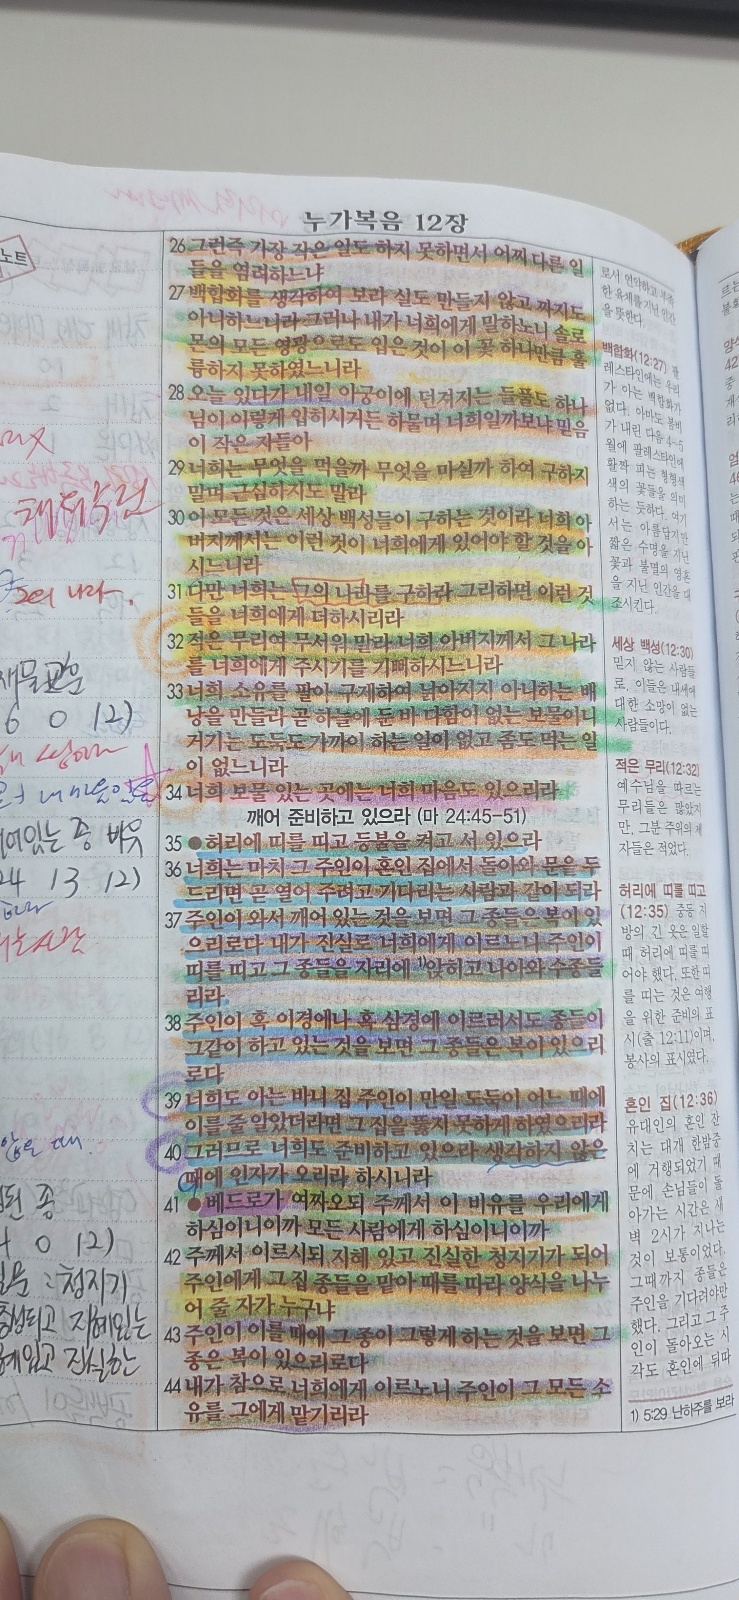 누가복음 12장
노트
그의 나라.
재물교훈
6 0 12)
깨어있는 종 비유
24 13 12)
된 종
4 0 12)
질문 : 청지기
충성되고 지혜있는
지혜있고 진실한
26 그런즉 가장 작은 일도 하지 못하면서 어찌 다른 일
들을 염려하느냐
27 백합화를 생각하여 보라 실도 만들지 않고 짜지도
아니하느니라 그러나 내가 너희에게 말하노니 솔로
몬의 모든 영광으로도 입은 것이 이 꽃 하나만큼 훌
륭하지 못하였느니라
28 오늘 있다가 내일 아궁이에 던져지는 들풀도 하나
님이 이렇게 입히시거든 하물며 너희일까보냐 믿음
이 작은 자들아
29 너희는 무엇을 먹을까 무엇을 마실까 하여 구하지
말며 근심하지도 말라
30 이 모든 것은 세상 백성들이 구하는 것이라 너희 아
버지께서는 이런 것이 너희에게 있어야 할 것을 아
시느니라
31 다만 너희는 그의 나라를 구하라 그리하면 이런 것
들을 너희에게 더하시리라
32 적은 무리여 무서워 말라 너희 아버지께서 그 나라
를 너희에게 주시기를 기뻐하시느니라
33 너희 소유를 팔아 구제하여 낡아지지 아니하는 배
낭을 만들라 곧 하늘에 둔 바 다함이 없는 보물이니
거기는 도둑도 가까이 하는 일이 없고 좀도 먹는 일
이 없느니라
34 너희 보물 있는 곳에는 너희 마음도 있으리라
깨어 준비하고 있으라 (마 24:45-51)
35 ●허리에 띠를 띠고 등불을 켜고 서 있으라
36 너희는 마치 그 주인이 혼인 집에서 돌아와 문을 두
드리면 곧 열어 주려고 기다리는 사람과 같이 되라
37 주인이 와서 깨어 있는 것을 보면 그 종들은 복이 있
으리로다 내가 진실로 너희에게 이르노니 주인이
띠를 띠고 그 종들을 자리에 1)앉히고 나아와 수종들
리라
38 주인이 혹 이경에나 혹 삼경에 이르러서도 종들이
그같이 하고 있는 것을 보면 그 종들은 복이 있으리
로다
39 너희도 아는 바니 집 주인이 만일 도둑이 어느 때에
이를 줄 알았더라면 그 집을 뚫지 못하게 하였으리라
40 그러므로 너희도 준비하고 있으라 생각하지 않은
때에 인자가 오리라 하시니라
41 ●베드로가 여짜오되 주께서 이 비유를 우리에게
하심이니이까 모든 사람에게 하심이니이까
42 주께서 이르시되 지혜 있고 진실한 청지기가 되어
주인에게 그 집 종들을 맡아 때를 따라 양식을 나누
어 줄 자가 누구냐
43 주인이 이를 때에 그 종이 그렇게 하는 것을 보면 그
종은 복이 있으리로다
44 내가 참으로 너희에게 이르노니 주인이 그 모든 소
유를 그에게 맡기리라
로서 연약하고 부족
한 육체를 지닌 인간
을 뜻한다.
백합화(12:27) 팔
레스타인에는 우리
가 아는 백합화가
없다. 아마도 봄비
가 내린 다음 4~5
월에 팔레스타인에
활짝 피는 형형색
색의 꽃들을 의미
하는 듯하다. 여기
서는 아름답지만
짧은 수명을 지닌
꽃과 불멸의 영혼
을 지닌 인간을 대
조시킨다.
세상 백성(12:30)
믿지 않는 사람들
로, 이들은 내세에
대한 소망이 없는
사람들이다.
적은 무리(12:32)
예수님을 따르는
무리들은 많았지
만, 그분 주위의 제
자들은 적었다.
허리에 띠를 띠고
(12:35) 중동 지
방의 긴 옷은 일할
때, 허리에 띠를 띠
어야 했다. 또한 띠
를 띠는 것은 여행
을 위한 준비의 표
시(출 12:11)이며,
봉사의 표시였다.
혼인 집(12:36)
유대인의 혼인 잔
치는 대개 한밤중
에 거행되었기 때
문에 손님들이 돌
아가는 시간은 새
벽 2시가 지나는
것이 보통이었다.
그때까지 종들은
주인을 기다려야만
했다. 그리고 그 주
인이 돌아오는 시
각도 혼인에 뒤따
1) 5:29 난하주를 보라